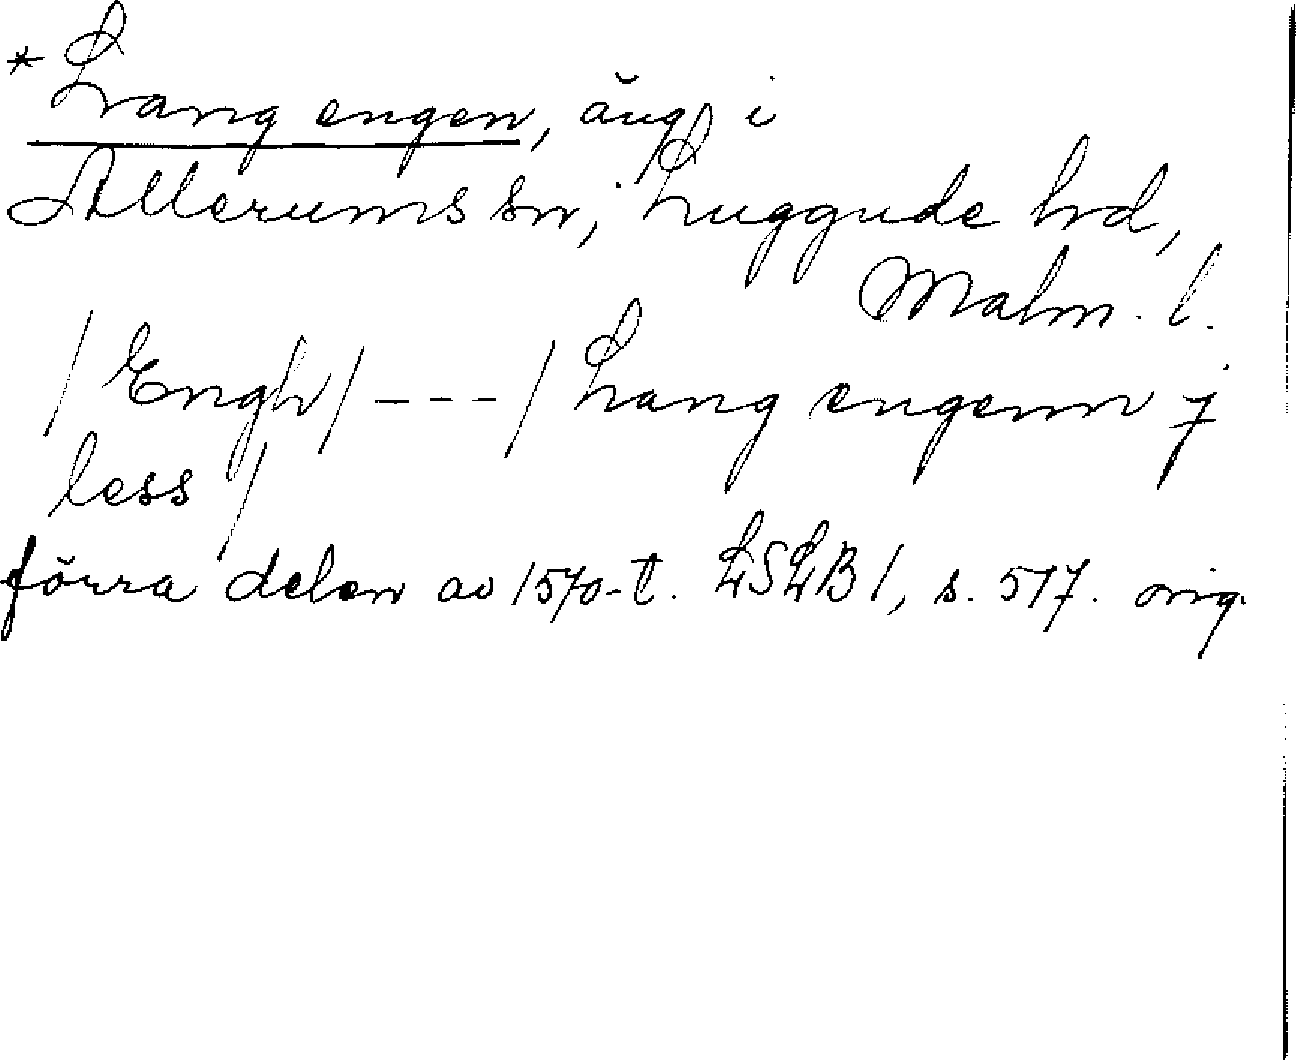 * Lang engen, äng i
Allerums sn, Luggude hd,
Malm. l.
/ Engh / - - - / Lang engenn j
less /
förra delen av 1570-t. LSLB 1, s. 517. orig.